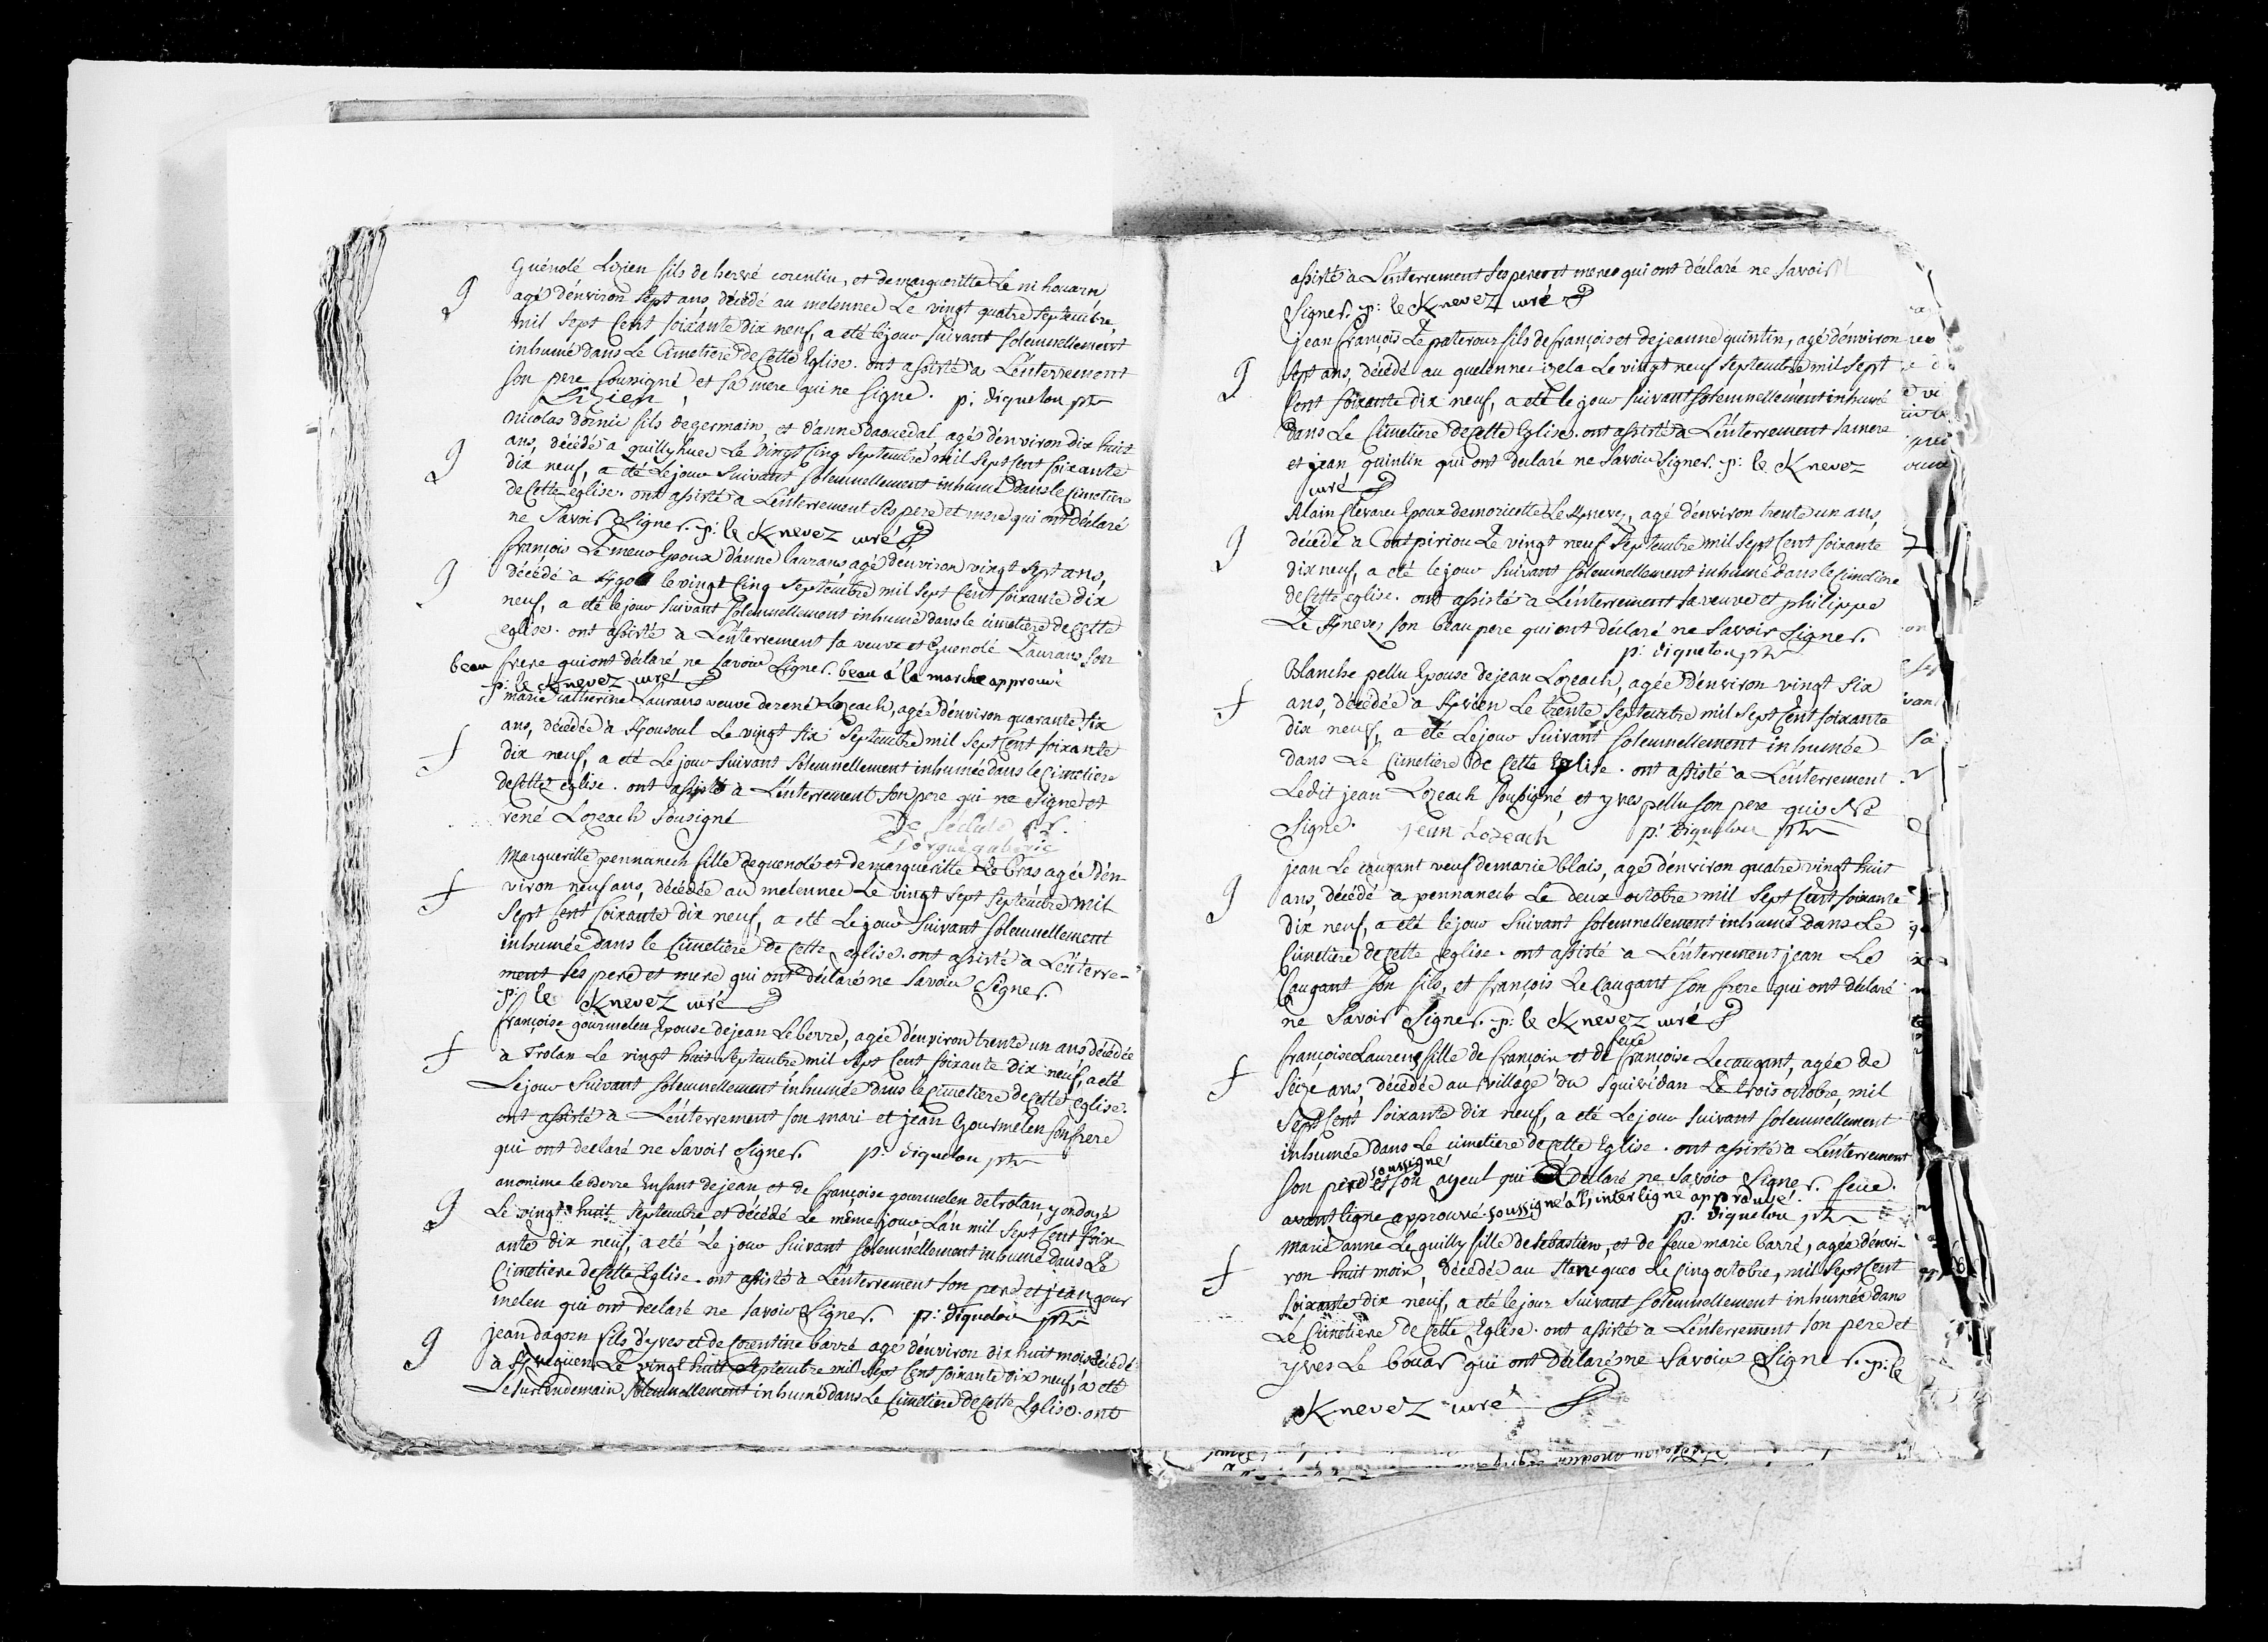 Guénolé Lizien fils de hervé corentin, et de margueritte Le nihouarn
g
agé d'environ sept ans, décédé au melennec Le vingt quatre septembre
mil sept Cent soixante dix neuf, a eté lejour suivant solemnellement
inhumé dans Le Cimetiere de Cette Eglise. ont assisté a L'enterrement
son pere sousigné, et sa mere qui ne signe. p: diquelou ptre
Lizien
nicolas doinic fils de germain, et d'anne daouedal agé d'environ dix huit
g
ans, décédé a quillyhuec Le vingt Cinq septembre mil sept Cent soixante
dix neuf, a été Le jour suivant solemnellement inhumé dans le cimetiere
de Cette eglise. ont assisté a L'enterrement ses pere et mere qui ont déclaré
ne Savoir Signer. p: le Knevez curé
françois Le meur Epoux d'anne Laurans agé d'environ vingt sept ans,
g
décédé a le vingt Cinq septembre mil sept Cent soixante dix
neuf, a eté lejour suivant solemnellement inhumé dans le cimetiere de Cette
eglise. ont assisté a L'enterrement sa veuve et Guenolé Laurans son
beau frere qui ont déclaré ne savoir signer. beau á la marche approuvé
p: le Knevez curé
marie Catherine Laurans veuve de rené Lozeach, agée d'environ quarante six
f
ans, décédée a Kousoul Le vingt six septembre mil sept Cent soixante
dix neuf, a eté Le jour suivant solemnellement inhumée dans le cimetiere
de Cette eglise. ont assisté a L'enterrement son pere qui ne signe et
rené Lozeach sousigné
Margueritte pennanech fille de guenolé et de margueritte Le bras agée d'en-
f
viron neuf ans, décédée au melennec Le vingt sept septembre mil
sept Cent soixante dix neuf, a eté Le jour suivant solemnellement
inhumée dans le Cimetiere de Cette eglise. ont assisté a L'enterre-
ment ses pere et mere qui ont déclaré ne savoir signer.
p: le Knevez curé
françoise gourmelen Epouse de jean Le berre, agée d'environ trente un ans décédée
f
a Trolan Le vingt huit septembre mil sept Cent soixante dix neuf, a eté
Le jour suivant solemnellement inhumée dans le Cimetiere de Cette eglise.
ont assisté a L'enterrement son mari et jean Gourmelen son frere
qui ont declaré ne savoir signer. p: diquelou ptre
anonime le berre Enfant de jean, et de françoise gourmelen de trolan, y ondoyé
g
Le vingt huit septembre et décédé Le même jour L'an mil sept Cent soix-
ante dix neuf, a eté Le jour suivant solemnellement inhumé dans Le
Cimetiere de Cette Eglise. ont assisté a L'enterrement son pere et jean gour
melen qui ont declaré ne savoir signer. p: diquelou ptre
jean dagorn fils d'yves et de Corentine barré agé d'environ dix huit mois décédé
g
a Kveguen Le vingt huit septembre mil sept Cent soixante dix neuf, a eté
Le surlendemain solemnellement inhumé dans Le Cimetiere de Cette Eglise. ont
assisté a L'enterrement ses pere et mere qui ont déclaré ne savoir
signer. p: le Knevez curé
jean françois Le paterour fils de françois et de jeanne quintin, agé d'environ
g
sept ans, décédé au quelennec izela Le vingt neuf septembre mil sept
Cent soixante dix neuf, a eté le jour suivant solemnellement inhumé
dans Le Cimetiere de Cette Eglise. ont assisté a L'enterrement sa mere
et jean quintin qui ont declaré ne savoir signer. p: le Knevez
curé
Alain Clevarec Epoux de moricette Le Knevez, agé d'environ trente un ans
g
décédé a Coatpiriou Le vingt neuf septembre mil sept Cent soixante
dix neuf, a eté le jour suivant solemnellement inhumé dans le Cimetiere
de Cette eglise. ont assisté a L'enterrement sa veuve et philippe
Le Knevez son beau pere qui ont declaré ne savoir signer.
p: diquelou ptre
Blanche pellu Epouse de jean Lozeach, agée d'environ vingt six
f
ans, décédée a Le trente septembre mil sept Cent soixante
dix neuf, a eté Le jour suivant solemnellement inhumée
dans Le Cimetiere de Cette Eglise. ont assisté a L'enterrement
Ledit jean Lozeach sousigné, et yves pellu son pere qui Ne
signe. jean Lozeach p: diquelou ptre
jean Le caugant veuf de marie blais, agé d'environ quatre vingt huit
g
ans, décédé a pennanech Le deux octobre mil sept Cent soixante
dix neuf, a eté le jour suivant solemnellement inhumé dans Le
Cimetiere de Cette eglise. ont assisté a L'enterrement jean Le
Caugant son fils, et françois Le Caugant son frere qui ont déclaré
ne savoir signer. p: le Knevez curé
feue
françoise Laurens fille de françois et de françoise Le caugant, agée de
f
seize ans, décédée au village du squividan Le trois octobre, mil
sept Cent soixante dix neuf, a eté Le jour suivant solemnellement
inhumée dans Le cimetiere de Cette Eglise. ont assisté a L'enterrement
soussigné
son pere et son ayeul qui declaré ne savoir signer. feue.
avant ligne approuvé. soussigné a L'interligne approuvé.
p: diquelou ptre
Marie anne Le quilly fille de sebastien, et de feue marie barré, agée d'envi-
f
ron huit mois, décédée au stanc quo Le Cinq octobre, mil sept Cent
soixante dix neuf, a eté lejour suivant solemnellement inhumée dans
Le Cimetiere de Cette Eglise. ont assisté a L'enterrement son pere et
yves Le bouar qui ont déclaré ne savoir signer. p: le
Knevez curé